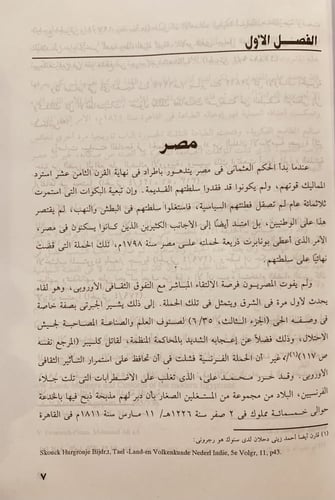 الفصل الأول
مصر
عندما بدأ الحكم العثماني فى مصر يتدهور باطراد فى نهاية القرن الثامن عشر استرد
المماليك قوتهم، ولم يكونوا قد فقدوا سلطتهم القديمة. وإن تبعية البكوات التى استمرت
ثلاثمائة عام لم تصقل فطنتهم السياسية، فاستغلوا سلطتهم فى البطش والنهب، لم يقتصر
هذا على الوطنيين، بل امتد أيضًا إلى الأجانب الكثيرين الذين كـانوا يسكنون فى مصر،
الأمر الذى أعطى بونابرت ذريعة لحملته على مصر سنة ١٧٩٨م، تلك الحملة التى قضت
نهائيًا على سلطتهم.
ولم يفوت المصريـون فرصة الالتقاء المباشر مع التفوق الثقافى الأوروبى، وهو لقاء
يحدث لأول مرة فى الشرق ويتمثل فى تلك الحملة. إلى ذلك يشير الجبرتى بصفة خاصة
فى وصفه الحى (الجزء الثالث، ٦/٣٥) لصنوف العلم والصناعة المصاحبة لجيش
الاحتلال، وفضلًا عن إعجابه الشديد بالمحاكمة المنظمة، لقاتل كليبر (المرجع نفسه
ص١١٧)(١)، غير أن الحملة الفرنسية فشلت فى أن تحافظ على استمرار التـأثير الثقافى
الأوروبى. وقـد حـرر محمـد على، الذى تغلب على الاضطرابات التى تلت جـلاء
الفرنسيين، البلاد من مجموعة من المستغلين الصغار بأن دبر لهم مذبحة ذبح فيها بالخدعة
حوالى خمسـمائة مملوك فى ٢ صفر سنة ١٢٢٦هـ/ ١١ مارس سنة ١٨١١م فى القاهرة
(١) قارن أيضا أحمد زينى دحلان لدى سنوك هو رجرونى:
Snouck Hurgronje Bijdr.t, Tael -Land-en Volkenkunde Nederl Indie, 5e Volgr, 11, p43.
٧